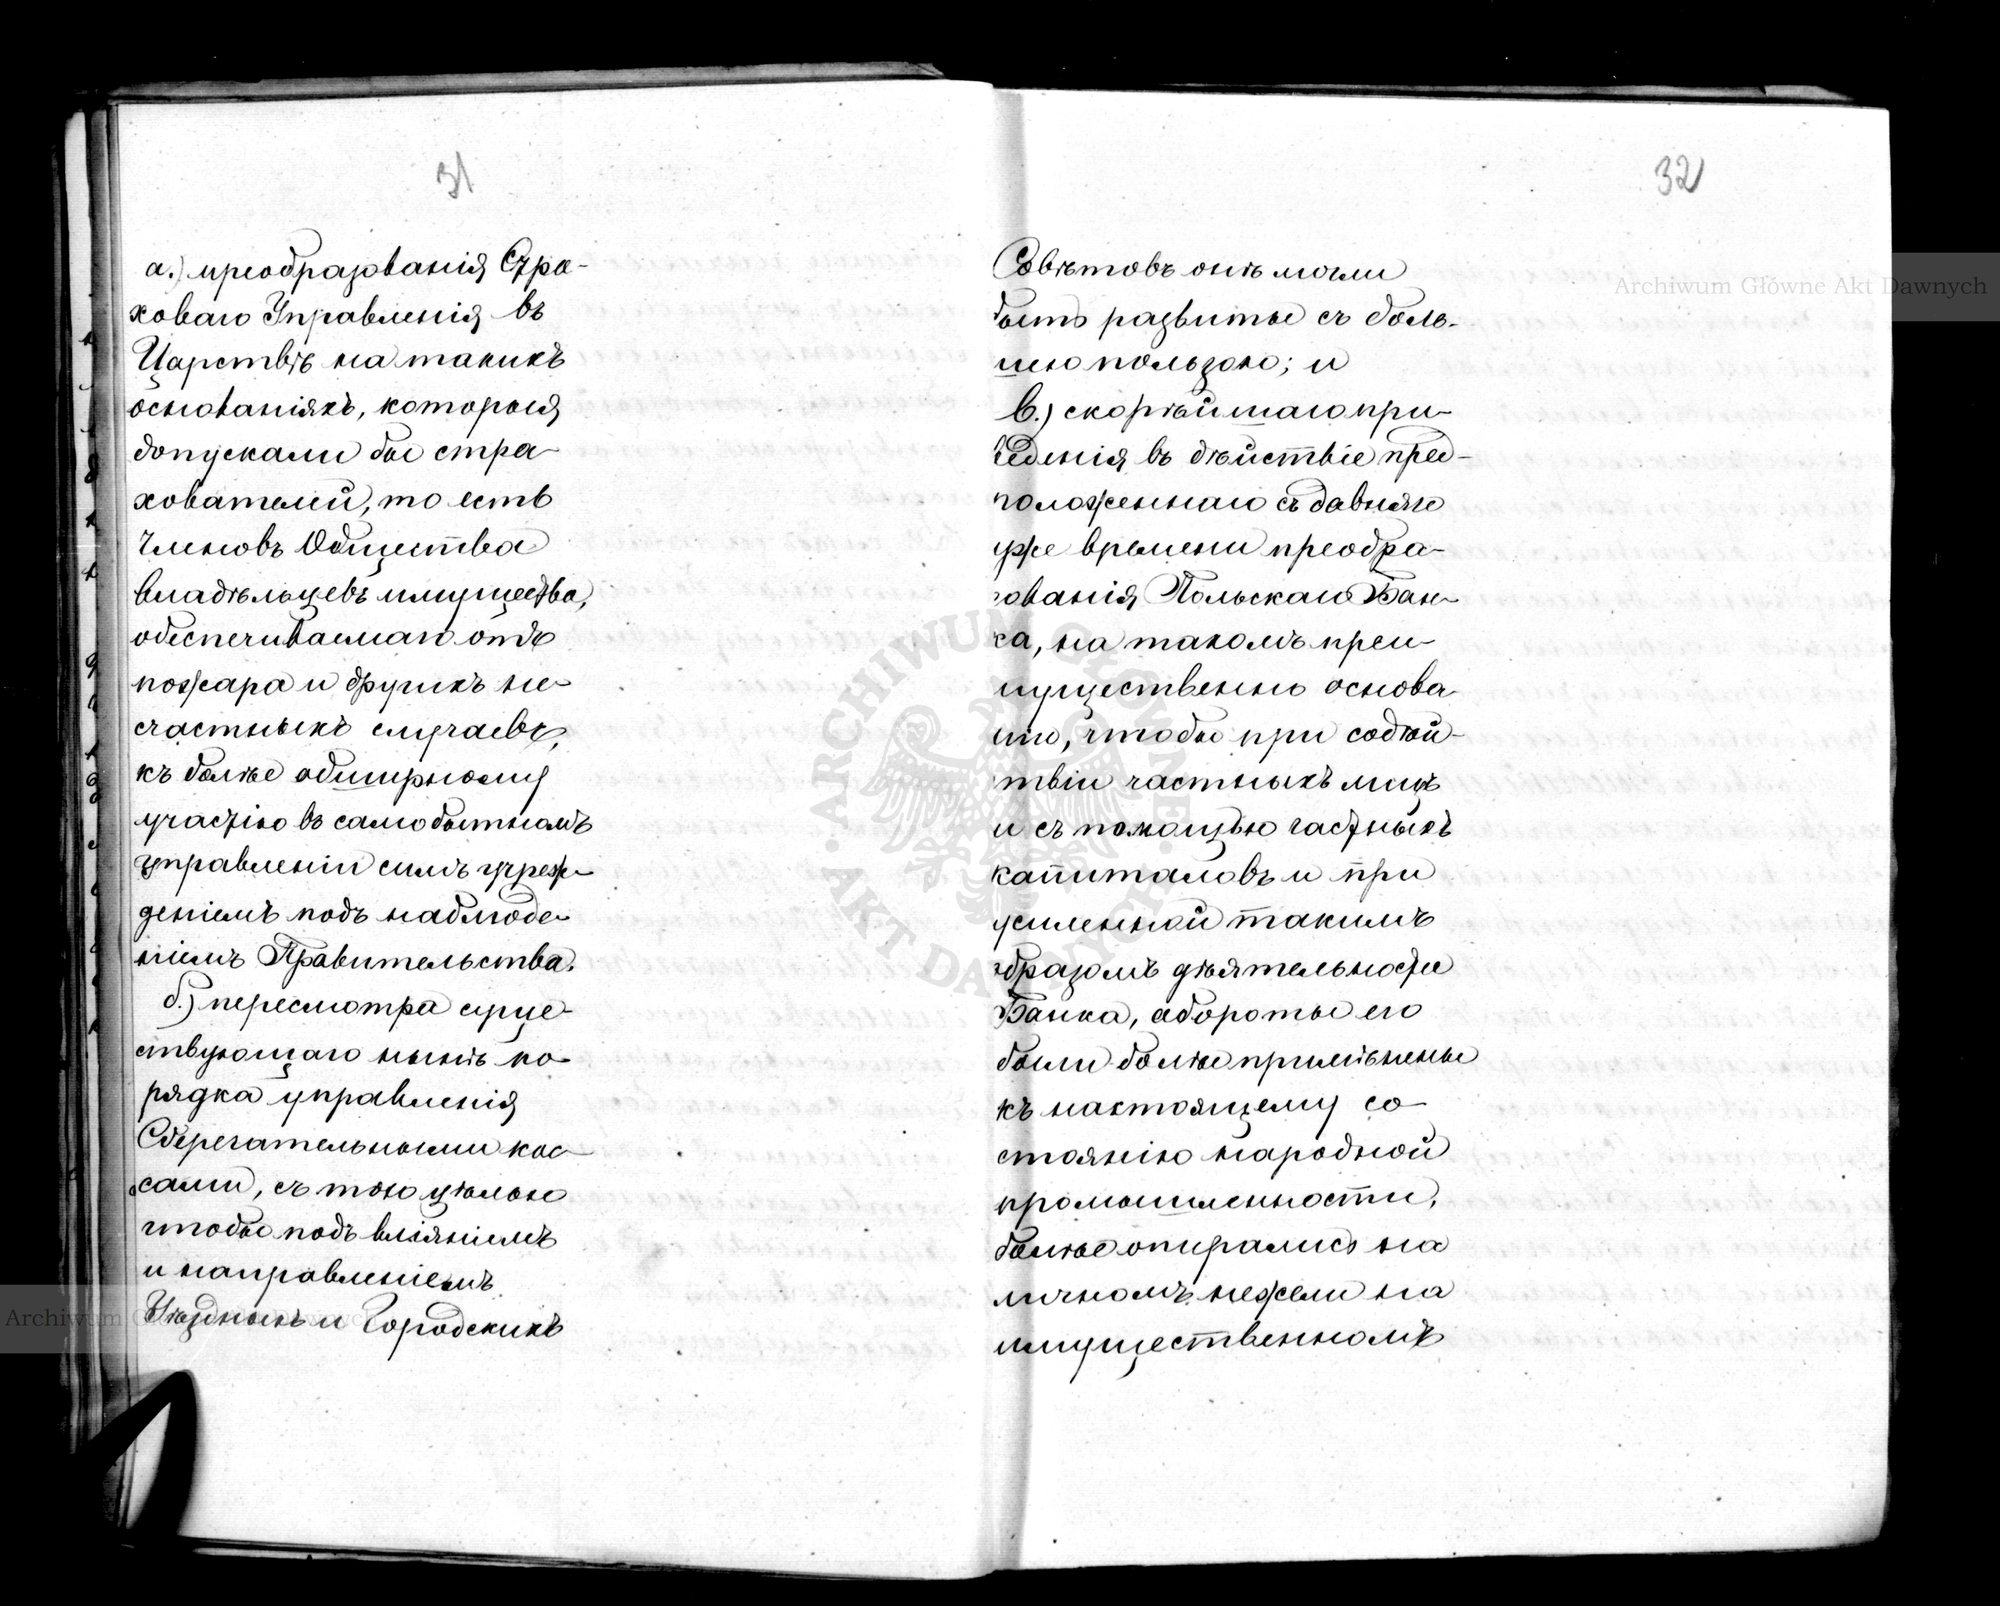 31
а.) преобразованія Стра-
ховаго Управленія въ
Царствѣ на такихъ
основаніяхъ, которыя
допускали бы стра-
хователей, то есть
Членовъ Общества
владѣльцевъ имущества,
обеспечиваемаго отъ
пожара и другихъ не-
счастныхъ случаевъ,
къ болѣе обширному
участію въ самобытномъ
управленіи симъ учреж-
деніемъ подъ наблюде-
ніемъ Правительства.
б.) пересмотра суще-
ствующаго нынѣ по-
рядка управленія
Сберегательными кас-
сами, съ тою цѣлью
чтобы подъ вліяніемъ
и направленіемъ
Уѣздныхъ и Городскихъ
32
Совѣтовъ онѣ могли
быть развиты съ боль-
шею пользою; и
в.) скорѣйшаго при-
веденія въ дѣйствіе пред-
положеннаго съ давняго
уже времени преобра-
зованія Польскаго Бан-
ка, на такомъ преи-
мущественно основа-
ніи, чтобы при содѣй-
ствіи частныхъ лицъ
и съ помощью частныхъ
капиталовъ и при
усиленной такимъ
образомъ дѣятельности
Банка, обороты его
были болѣе примѣнены
къ настоящему со-
стоянію народной
промышленности,
болѣе опирались на
личномъ нежели на
имущественномъ
Archiwum Główne Akt Dawnych
ARCHIWUM GŁÓWNE AKT DAWNYCH